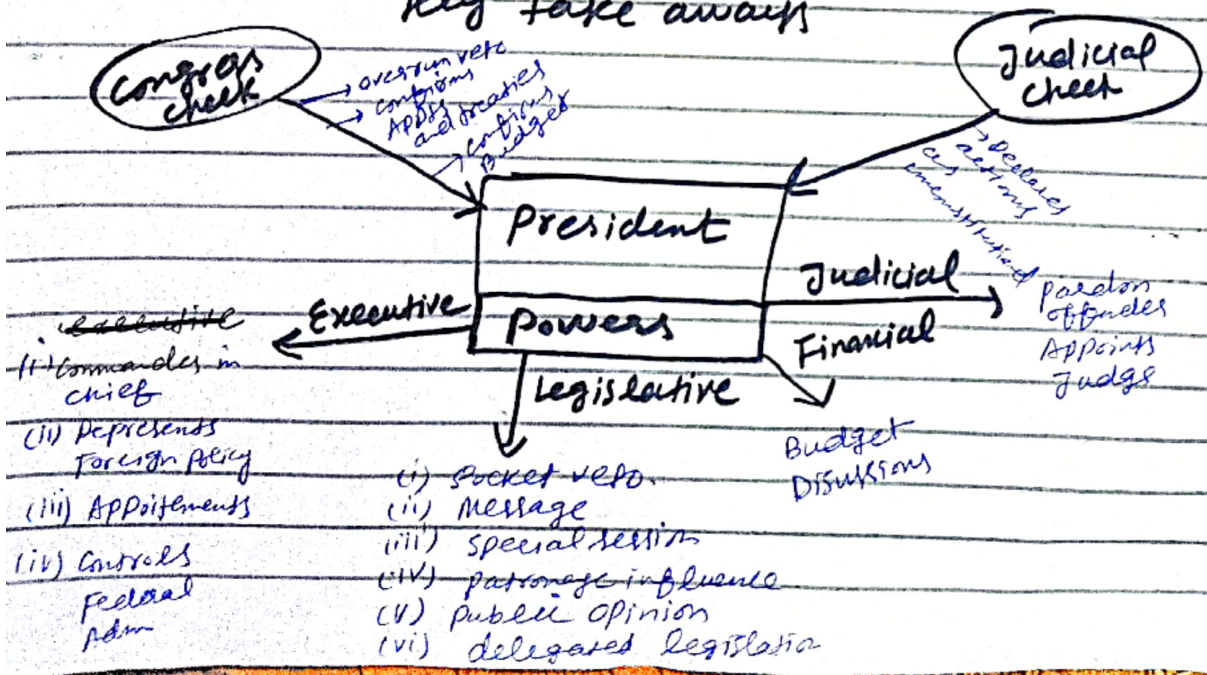 Key take aways
Congres
check
→ overrun veto
→ confirms
Appts
and treaties
→ confirms
Budget
Judicial
check
→ Declares
actions
as
unconstitutional
President
Powers
Executive
Judicial
Financial
Legislative
Pardon
offendes
Appoints
Judge
Budget
Disussions
(i) Commander in
chief
(ii) Represents
Foreign Policy
(iii) Appoitements
(iv) Controls
Federal
Adm
(i) Pocket veto.
(ii) Message
(iii) special session
(iv) patronage influence
(v) public opinion
(vi) delegated legislation